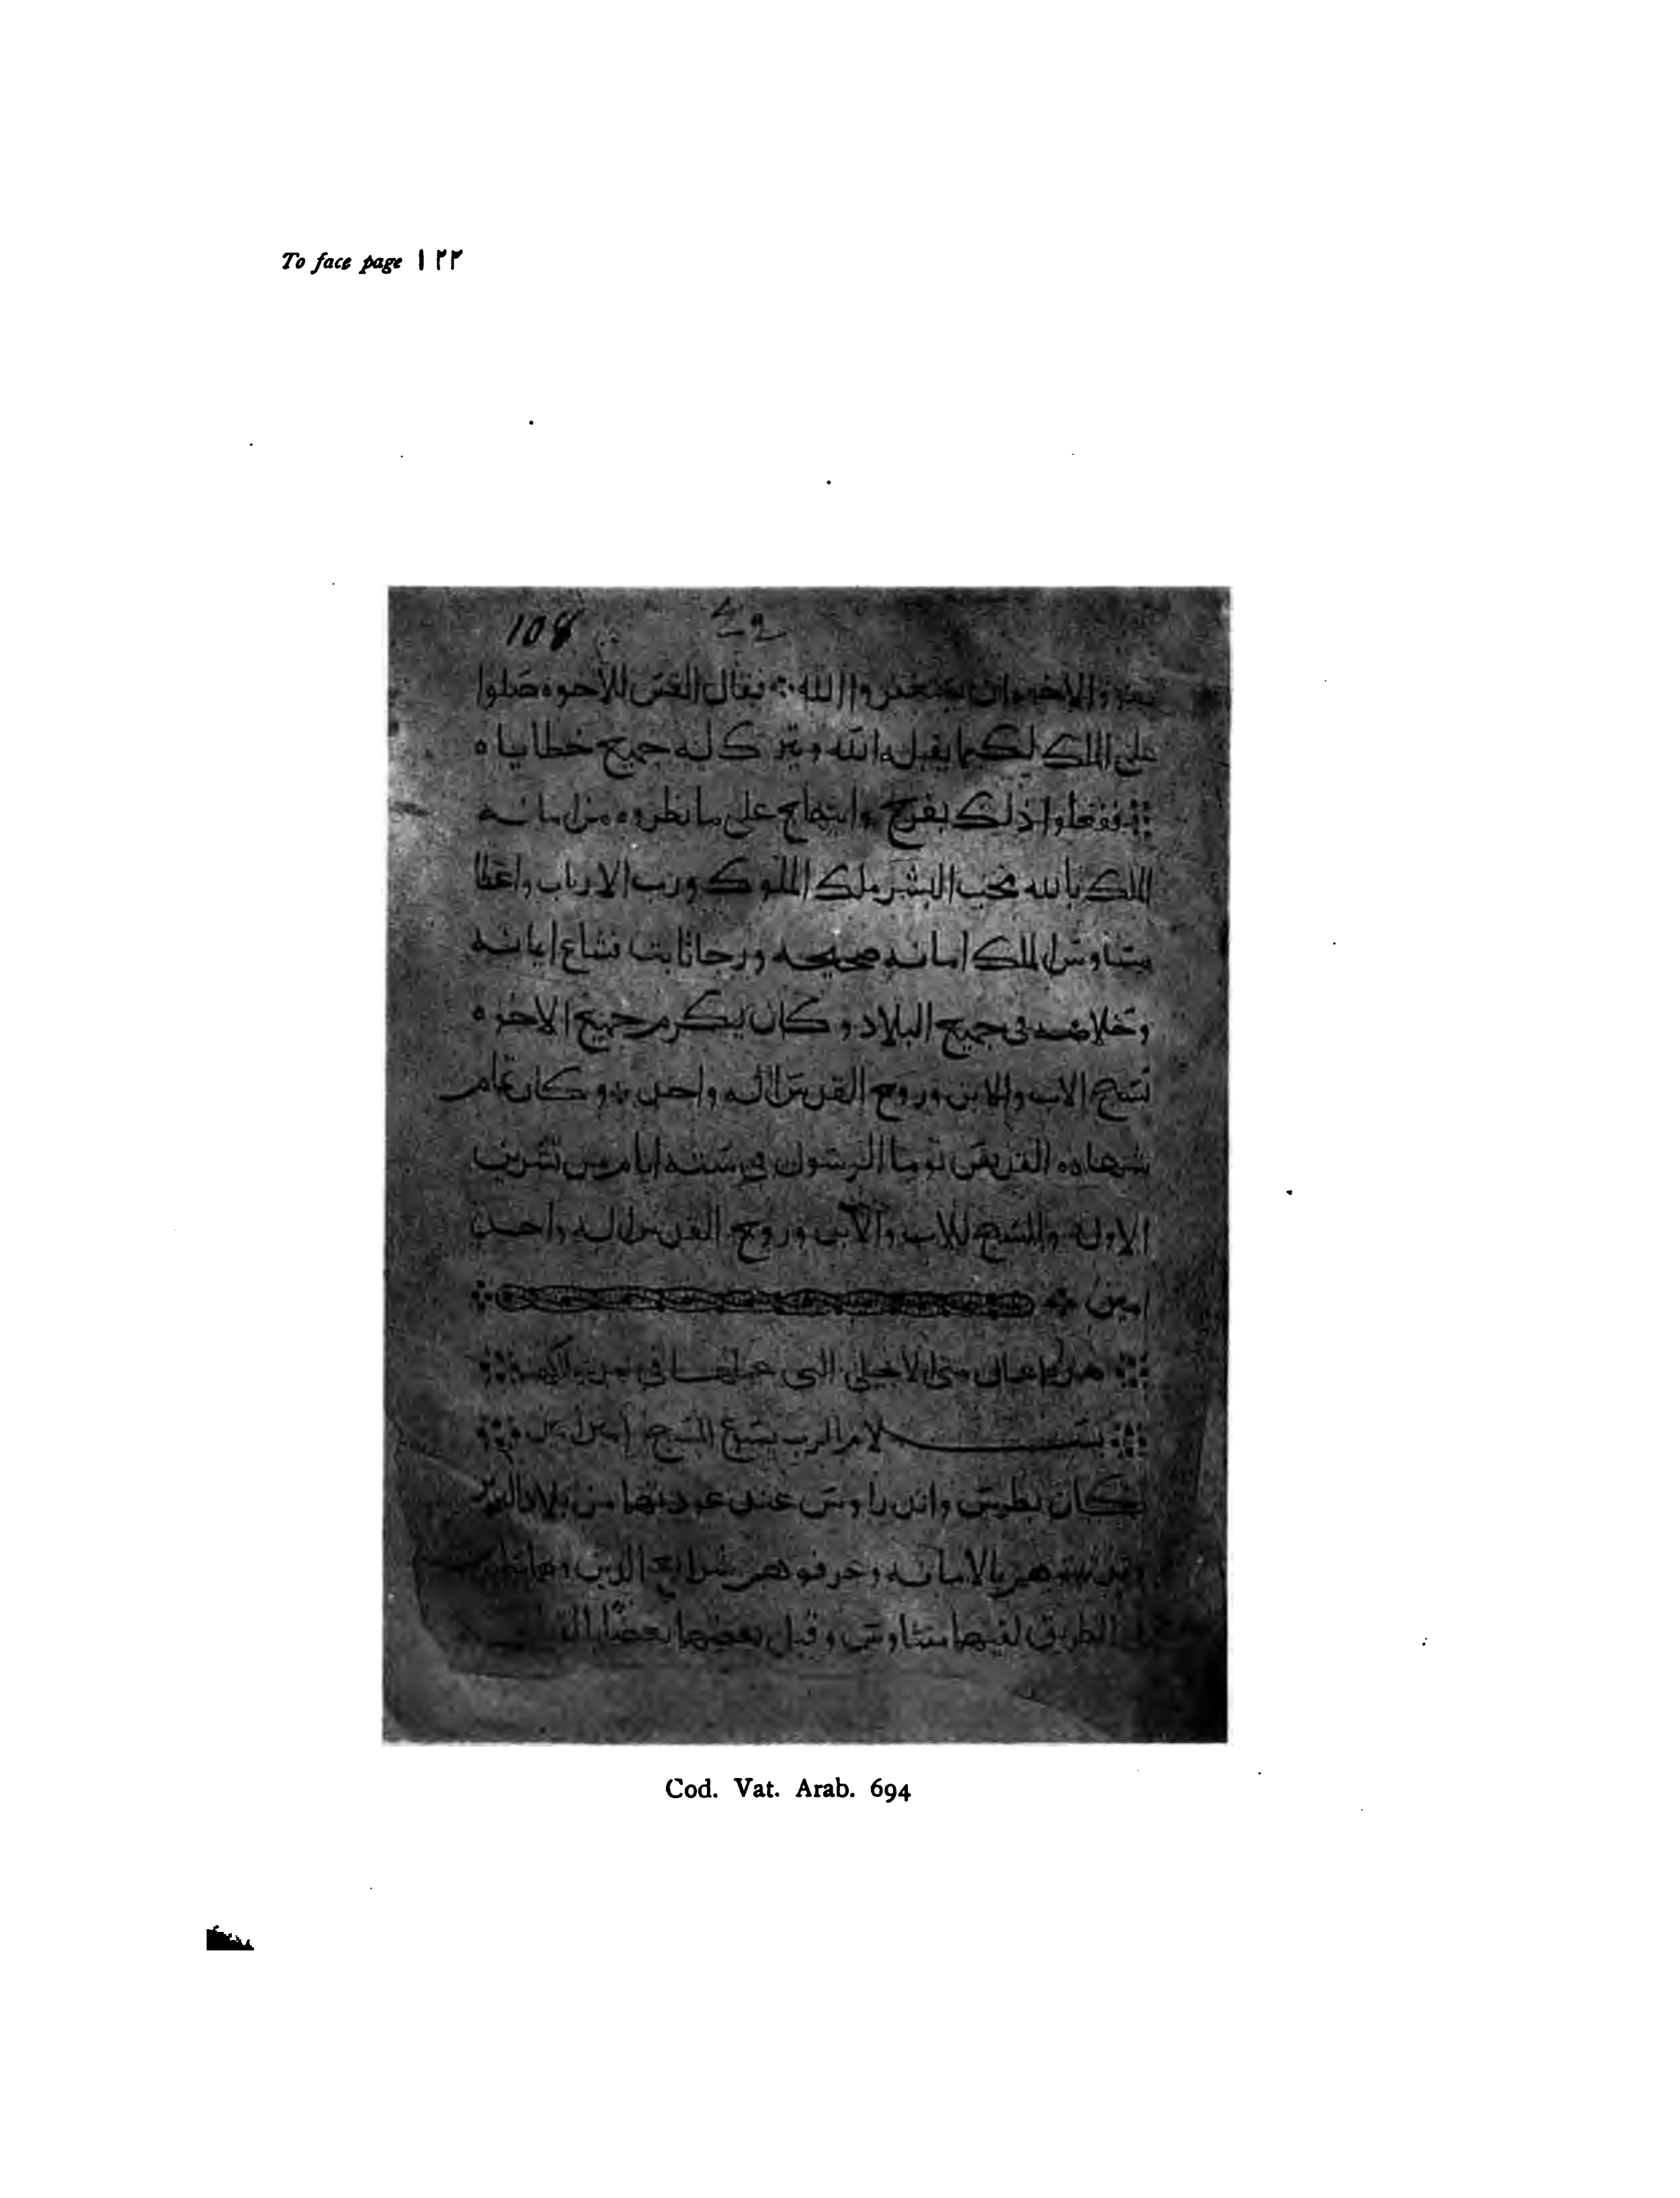 To face page ١٢٢
108
والاخوه ان الله فقال القس للاخوه صلوا
على الملك لكيما يقبله الله ويترك له جميع خطاياه
ففعلوا ذلك بفرح وابتهاج على ما نظروه من امانه
الملك بالله محب البشر ملك الملوك ورب الارباب واعطا
الملك امانه صحيحه ورجا ثابت فشاع ايمانه
وخلاصه في جميع البلاد وكان يكرم جميع الاخوه
نسبح الاب والابن وروح القدس اله واحد وكان تمام
شهاده القديس توما الرسول في سته ايام من تشرين
الاول والسبح للاب والابن وروح القدس اله واحد
امين
هذه متى الانجيلي التي في
بسلام الرب يسوع المسيح امين
كان بطرس واندراوس عند عودتهما من بلاد البربر
بالامانه وعرفوهم شرايع الدين
الطريق لقيهما متاوس وقبل بعضهما بعضا
Cod. Vat. Arab. 694